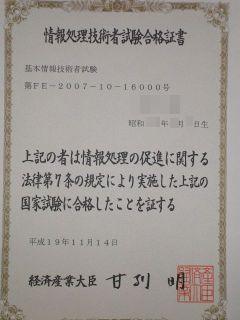 情報処理技術者試験合格証書
基本情報技術者試験
第FE-2007-10-16000号
昭和 年 月 日生
上記の者は情報処理の促進に関する
法律第7条の規定により実施した上記の
国家試験に合格したことを証する
平成19年11月14日
経済産業大臣 甘利 明